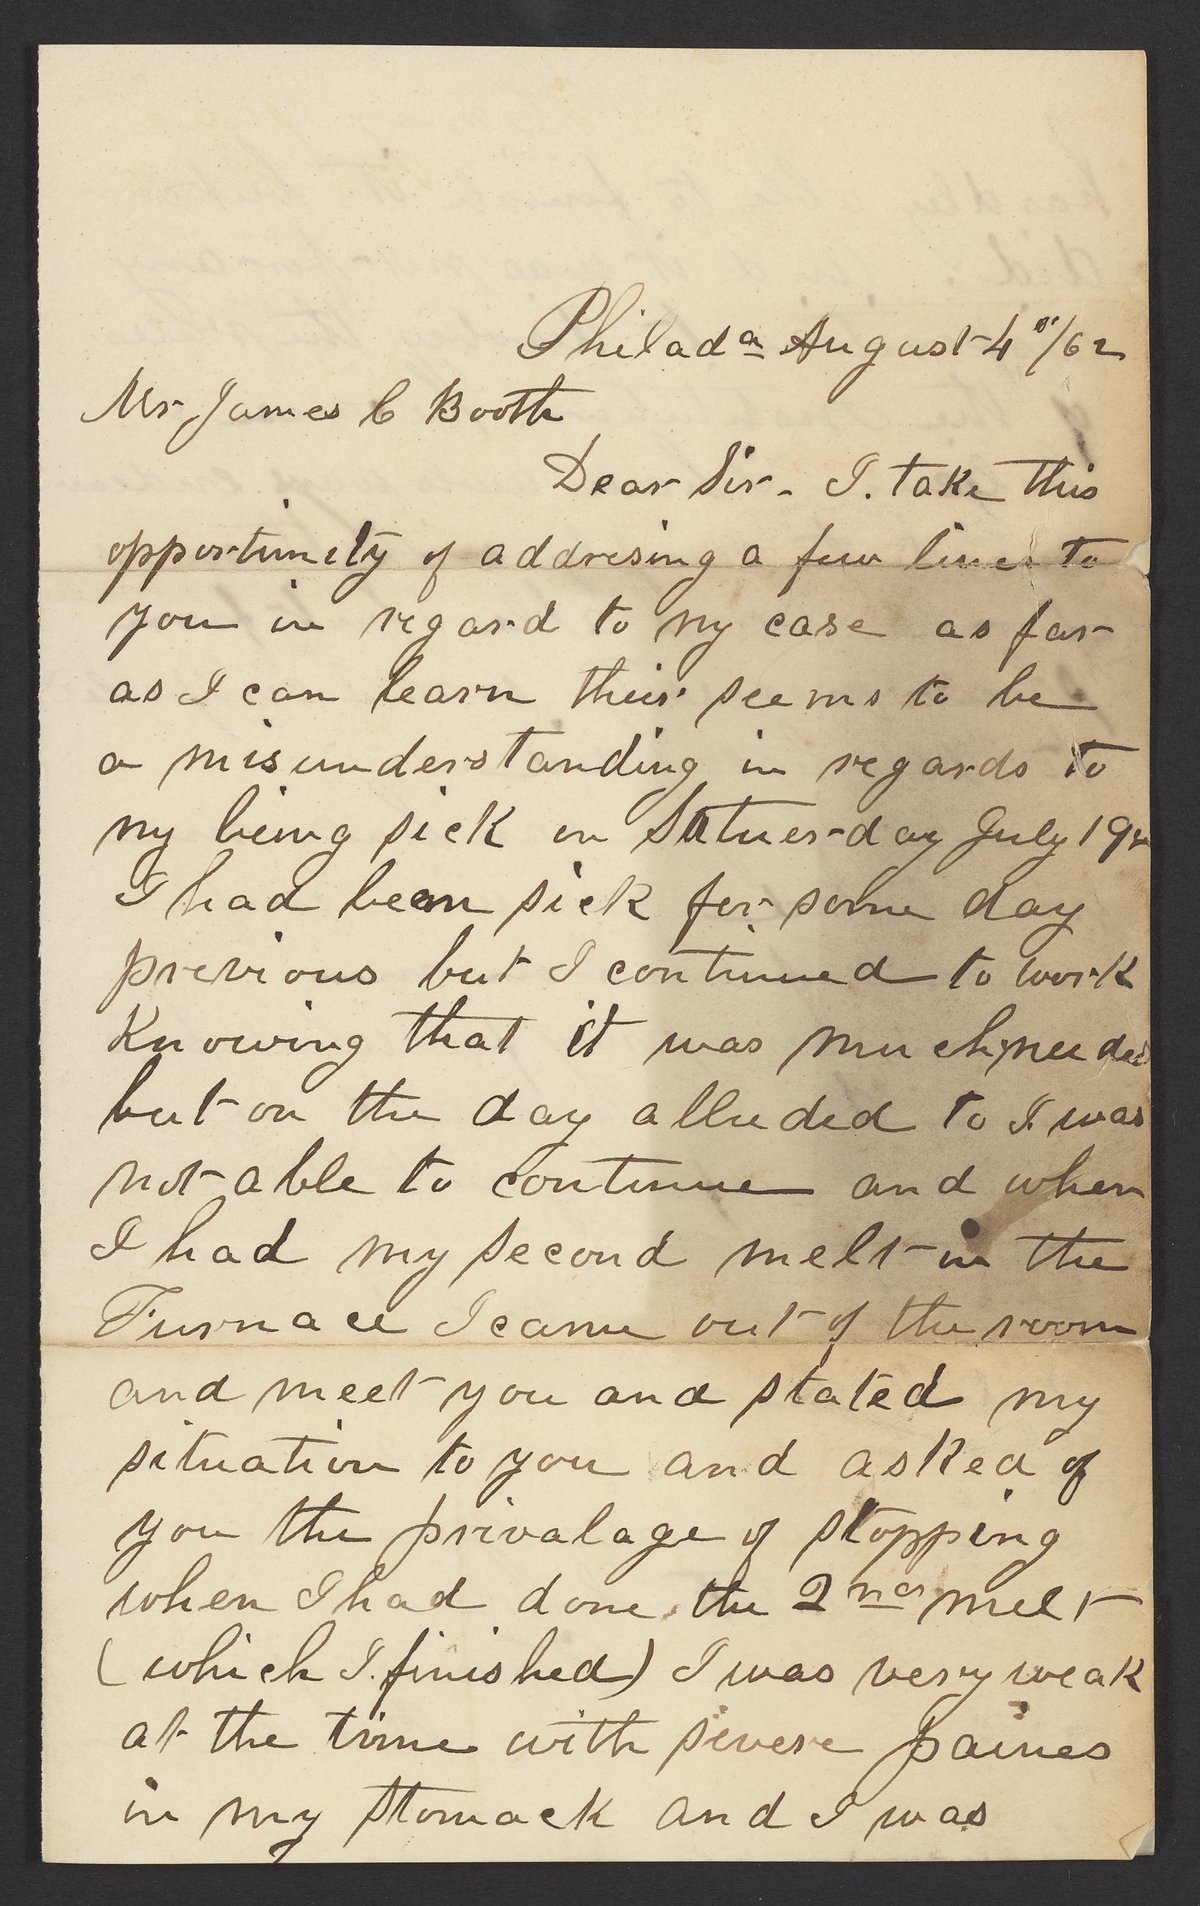 Philada August 4th/62
Mr James C Booth
Dear Sir - I. take this
opportunity of addresing a few lines to
you in regard to my case as far
as I can learn their seems to be
a misunderstanding in regards to
my being sick on Satuerday July 19th
I had been sick for some day
previous but I continued to work
Knowing that it was much needed
but on the day alluded to I was
not able to continue and when
I had my second melt in the
Furnace I came out of the room
and meet you and stated my
situation to you and asked of
you the privalage of stopping
when I had done the 2nd melt
(which I finished) I was very weak
at the time with sivere paines
in my stomack and I was